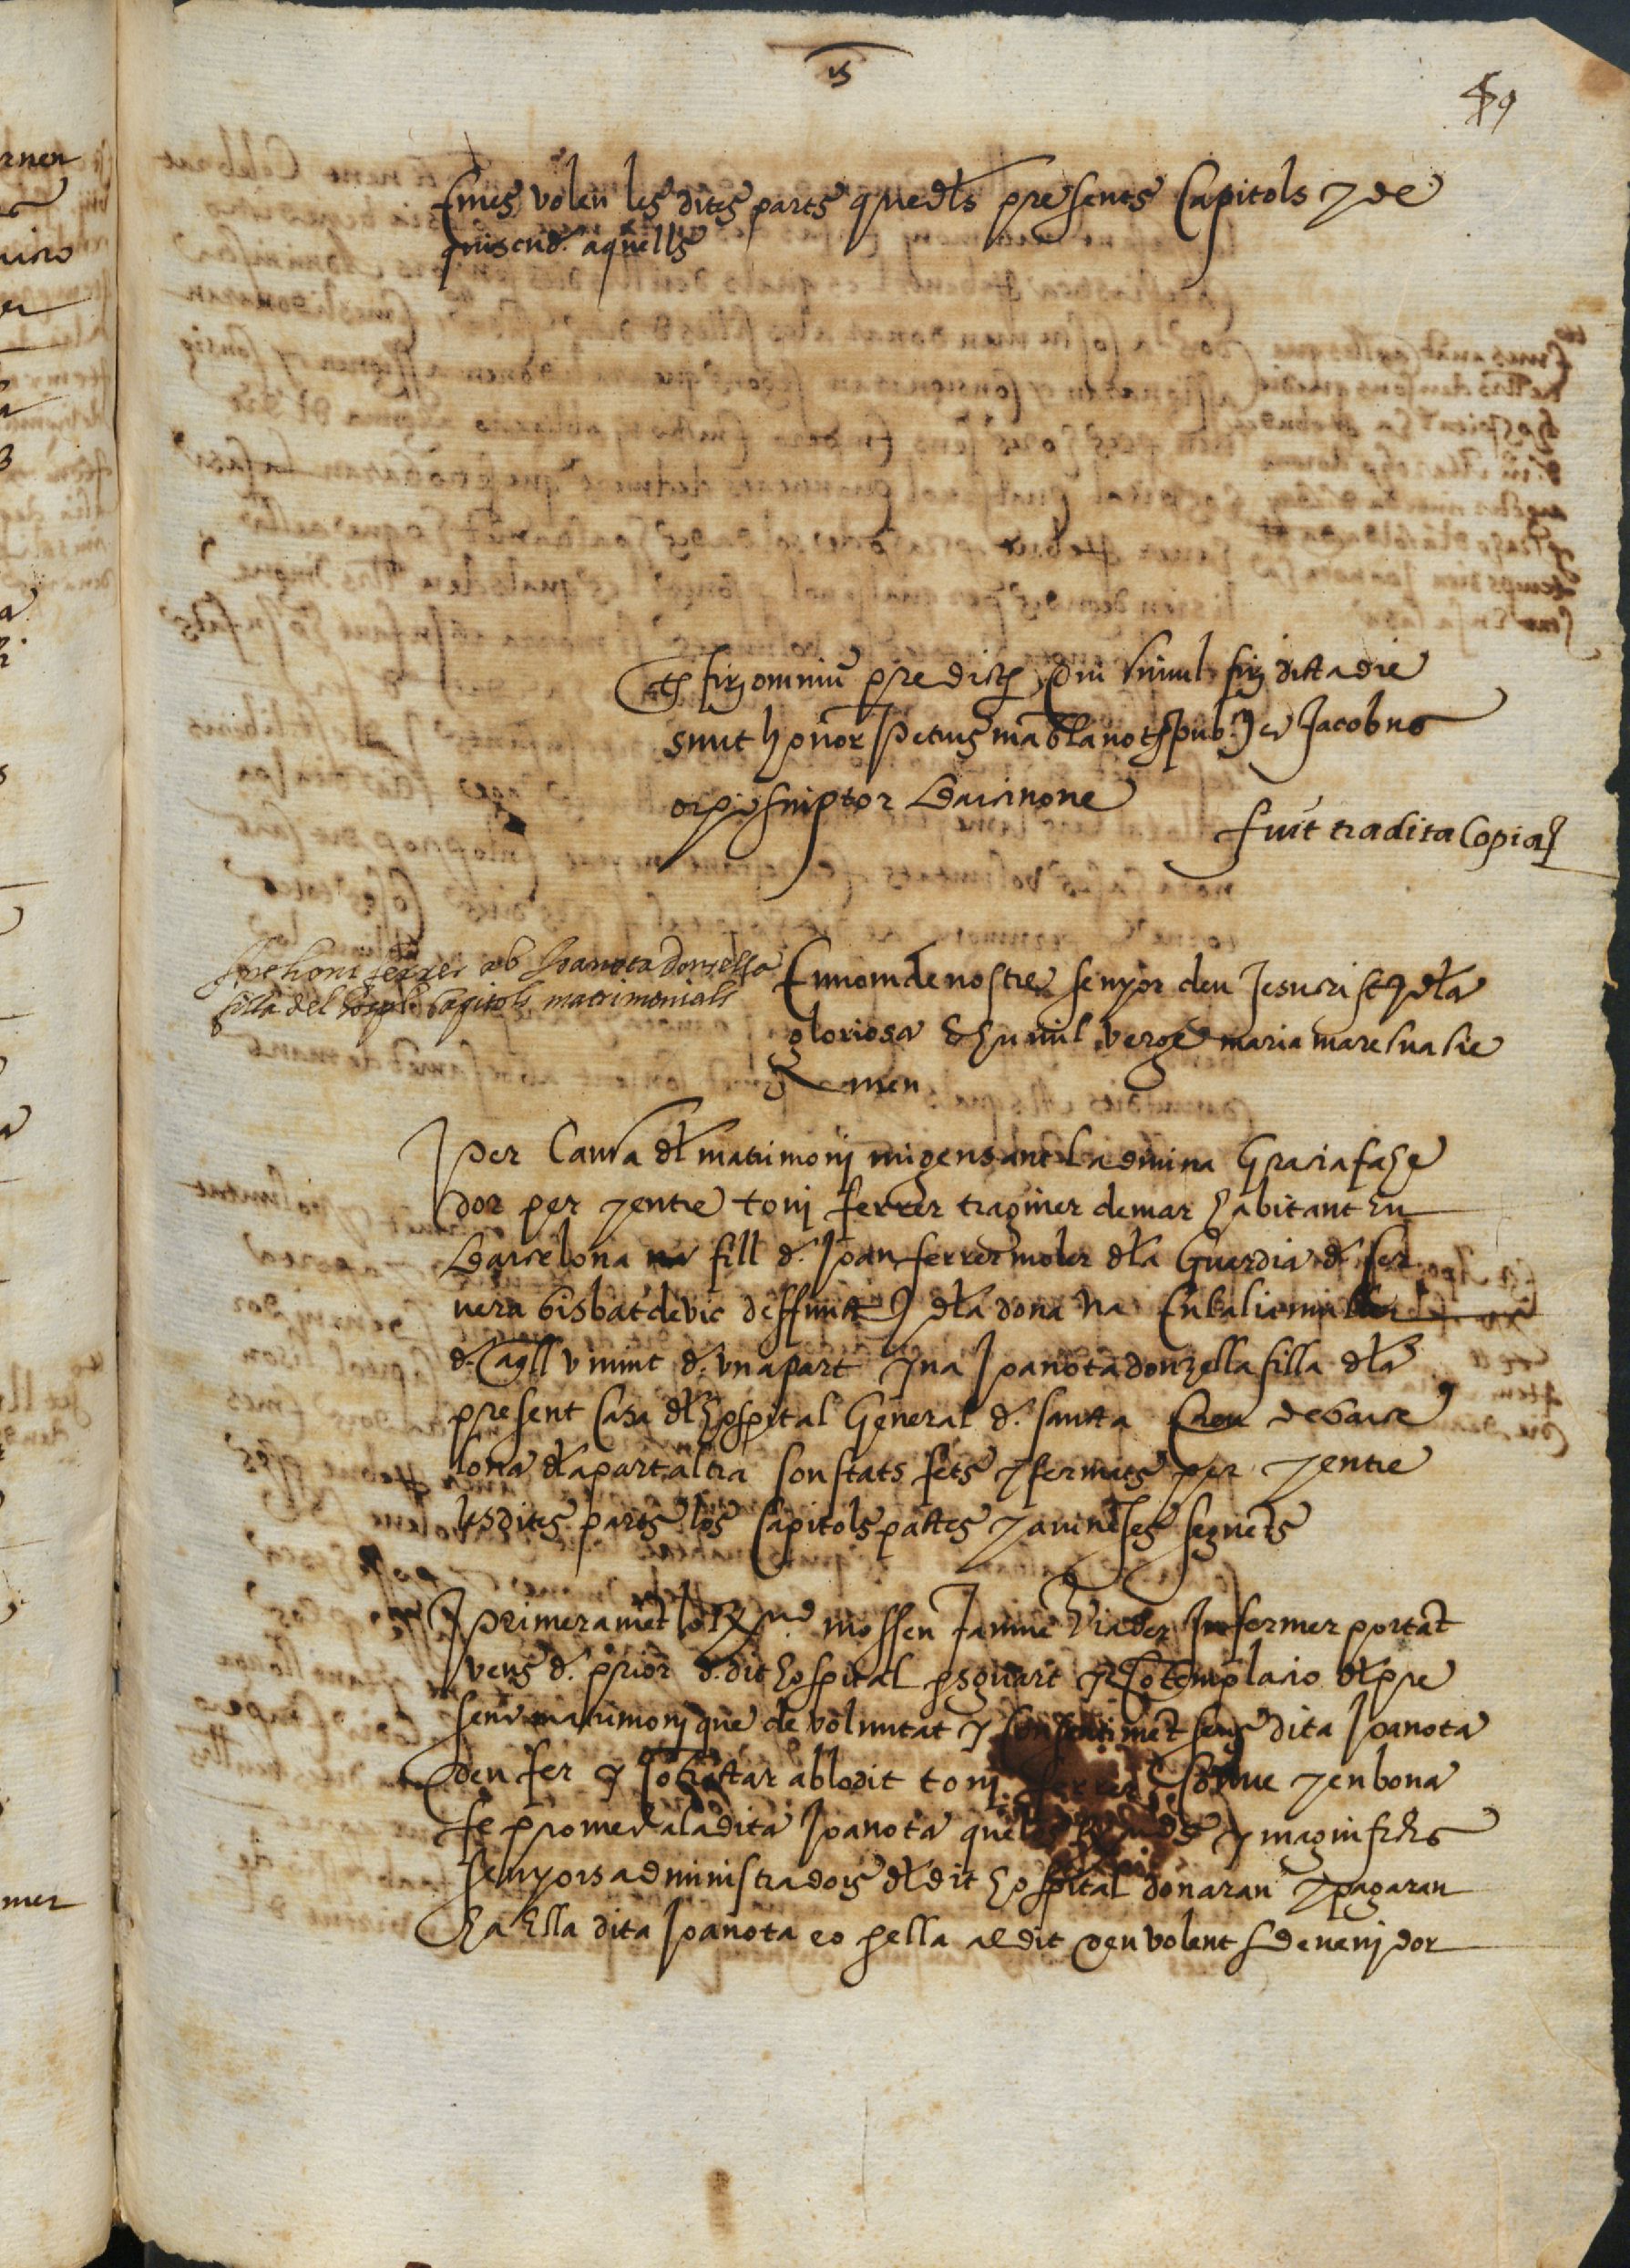 E mes volen les dites parts que dls presents Capitols y de
quiscu d. aquells
Ts firm omniu predictor dni simul firm dicta die
sunt honor Petrus mas bla not pub. y et Jacobus
scriptor Barcinone
fuit tradita Copia
Anthoni ferrer ab Joanota donzella
filla del hospl Capitols matrimonials
En nom de nostre senyor deu Jesucrist y dla
gloriosa E humil verge maria mare sua sie
Amen
Per Causa dl matrimoni migensant La divina Gracia fahe
dor per y entre toni ferrer traginer de mar habitant En
Barcelona fill d. Joan ferrer moler dla Guardia d. fer
nera bisbat de vic deffunct y dla dona Na Eulalia muller
d. aqll vivint d. vna part y na Joanota donzella filla dla
present Casa dl hospital General d. santa Creu de barce
lona dla part altra son stats fets y fermats per y entre
les dites parts los Capitols pactes y avineses seguets
Primeramet lo Rnt mossen Jaume Viader Infermer portat
veus d. prior d. dit hospital esguart y Cotemplacio dl pre
sent matrimoni que de voluntat y Consentimet seus dita Joanota
deu fer y Cotractar ab lo dit toni ferrer Conve y en bona
fe promet a la dita Joanota que los Rnts y magnifichs
senyors administradors dl dit hospital donaran y pagaran
ha Ella dita Joanota eo p ella al dit deu volent sdevenidor